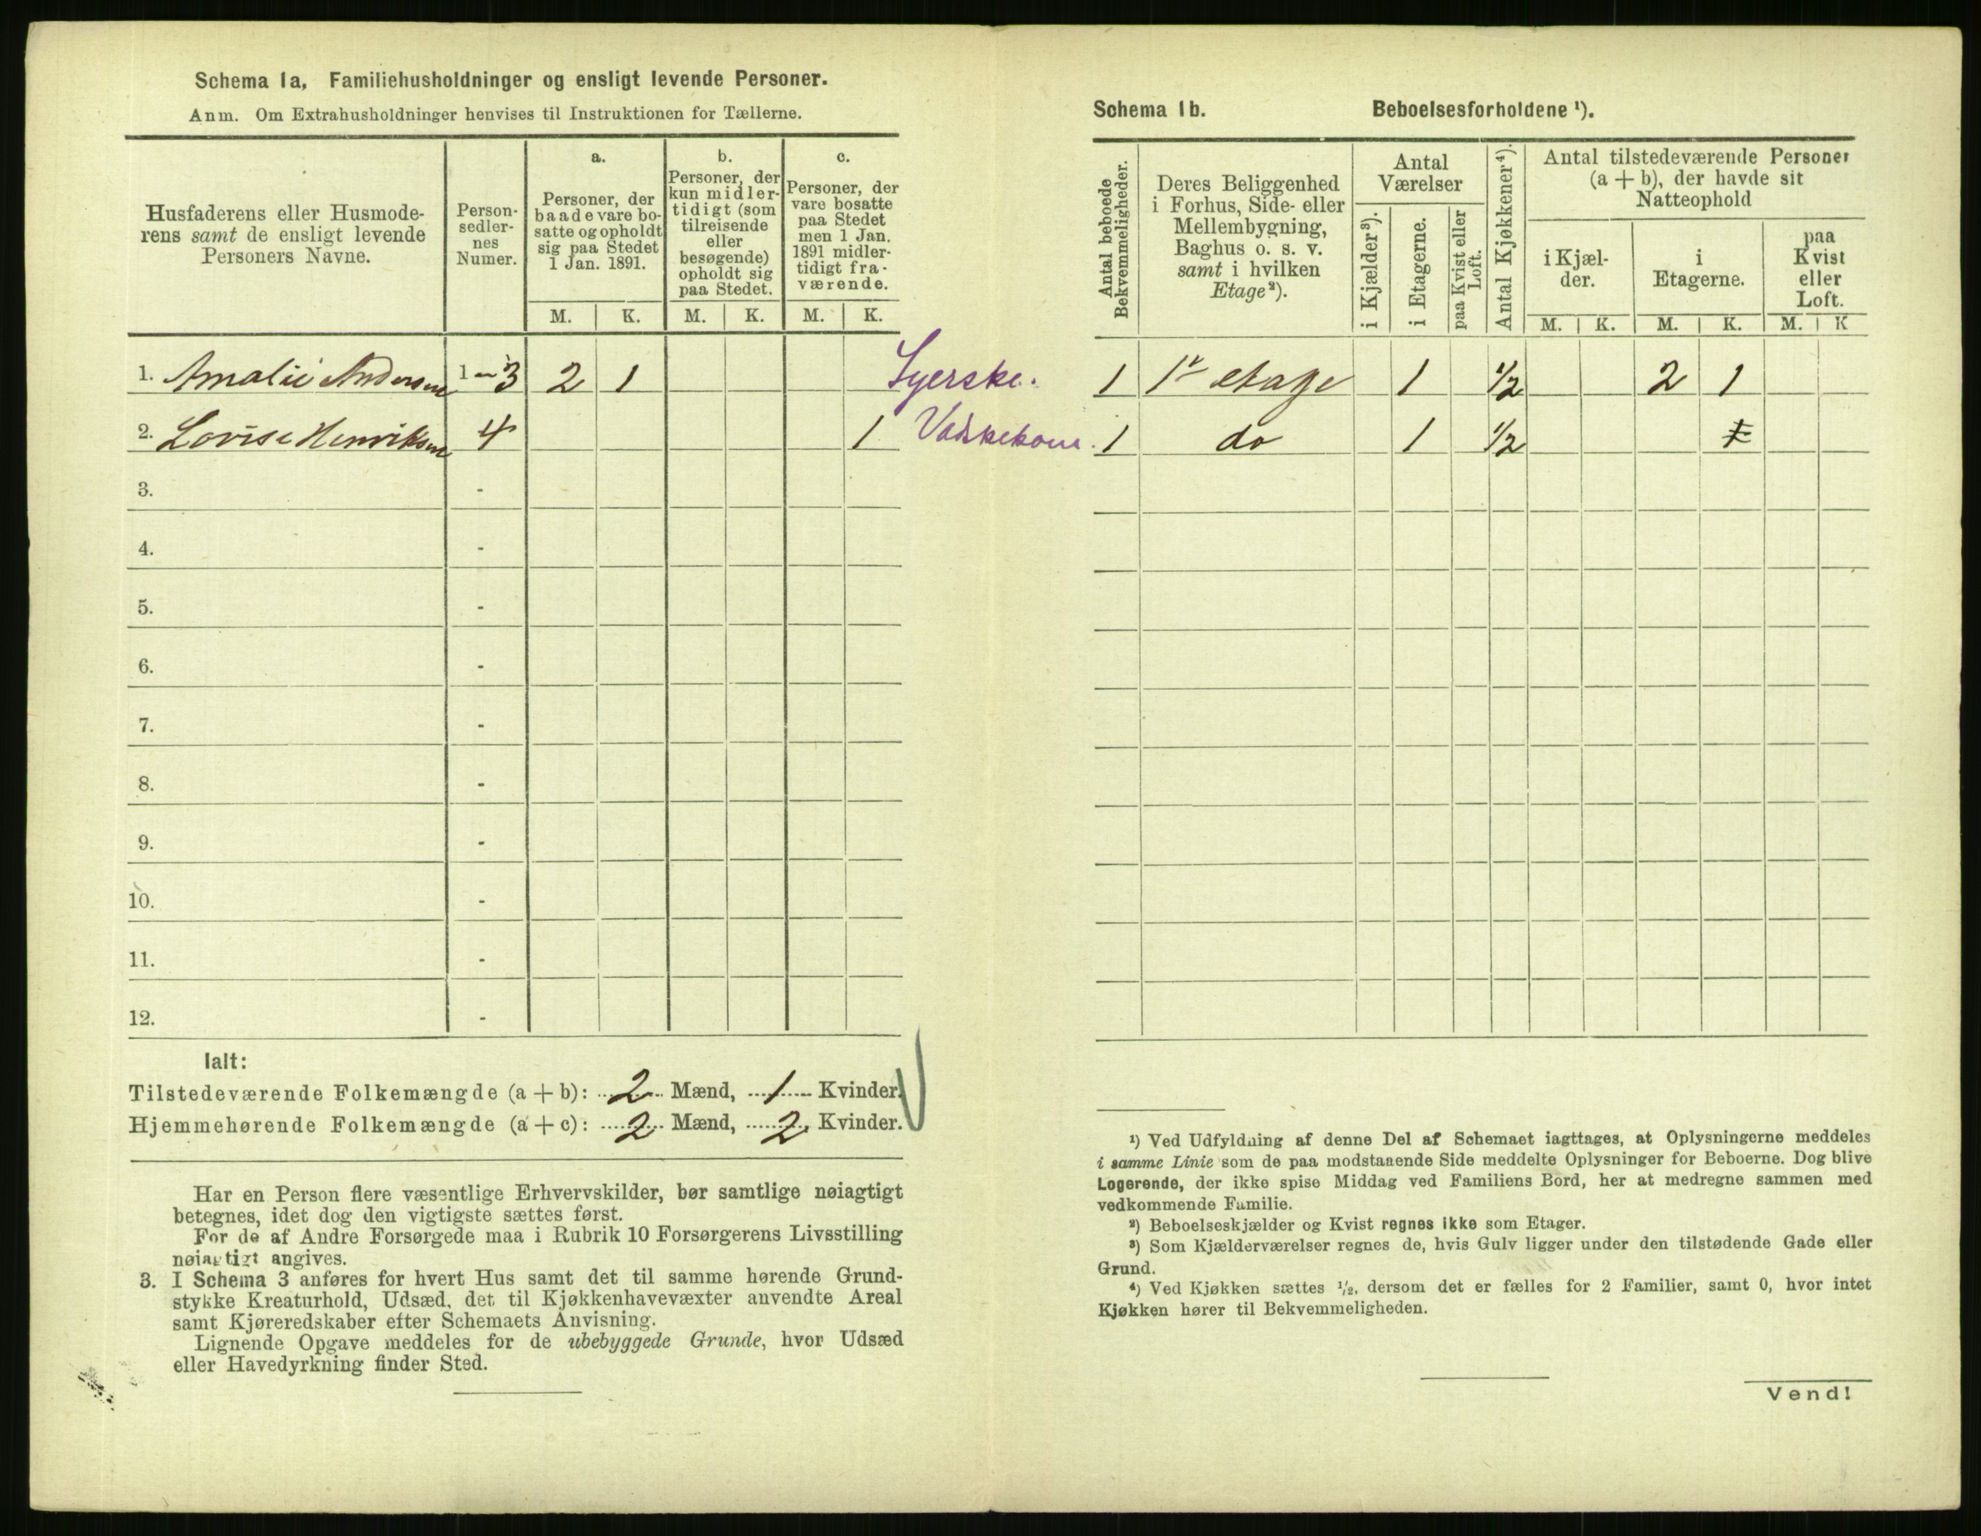 Schema 1a, Familiehusholdninger og ensligt levende Personer.
Anm. Om Extrahusholdninger henvises til Instruktionen for Tællerne.
Husfaderens eller Husmode-
rens samt de ensligt levende
Personers Navne.
Person-
sedler-
nes
Numer.
a.
Personer, der
baade vare bo-
satte og opholdt
sig paa Stedet
1 Jan. 1891.
b.
Personer, der
kun midler-
tidigt (som
tilreisende
eller
besøgende)
opholdt sig
paa Stedet.
c.
Personer, der
vare bosatte
paa Stedet
men 1 Jan.
1891 midler-
tidigt fra-
værende.
M. K. M. K. M. K.
1. Amalie Andersen 1 - 3 2 1 Syerske.
2. Lovise Henriksen 4 1 Vaskekone.
3. -
4. -
5. -
6. -
7. -
8. -
9. -
10. -
11. -
12. -
Ialt:
Tilstedeværende Folkemængde (a + b): 2 Mænd, 1 Kvinder.
Hjemmehørende Folkemængde (a + c): 2 Mænd, 2 Kvinder.
Har en Person flere væsentlige Erhvervskilder, bør samtlige nøiagtigt
betegnes, idet dog den vigtigste sættes først.
For de af Andre Forsørgede maa i Rubrik 10 Forsørgerens Livsstilling
nøiagtigt angives.
3. I Schema 3 anføres for hvert Hus samt det til samme hørende Grund-
stykke Kreaturhold, Udsæd, det til Kjøkkenhavevæxter anvendte Areal
samt Kjøreredskaber efter Schemaets Anvisning.
Lignende Opgave meddeles for de ubebyggede Grunde, hvor Udsæd
eller Havedyrkning finder Sted.
Schema 1b. Beboelsesforholdene ¹).
Antal beboede
Bekvemmeligheder.
Deres Beliggenhed
i Forhus, Side- eller
Mellembygning,
Baghus o. s. v.
samt i hvilken
Etage²).
Antal
Værelser
i Kjælder³).
i Etagerne.
paa Kvist eller
Loft.
Antal Kjøkkener⁴).
Antal tilstedeværende Personer
(a + b), der havde sit
Natteophold
i Kjæl-
der.
i
Etagerne.
paa
Kvist
eller
Loft.
M. K. M. K. M. K
1 1ᵗ etage 1 1/2 2 1
1 do 1 1/2
¹) Ved Udfyldning af denne Del af Schemaet iagttages, at Oplysningerne meddeles
i samme Linie som de paa modstaaende Side meddelte Oplysninger for Beboerne. Dog blive
Logerende, der ikke spise Middag ved Familiens Bord, her at medregne sammen med
vedkommende Familie.
²) Beboelseskjælder og Kvist regnes ikke som Etager.
³) Som Kjælderværelser regnes de, hvis Gulv ligger under den tilstødende Gade eller
Grund.
⁴) Ved Kjøkken sættes ¹/₂, dersom det er fælles for 2 Familier, samt 0, hvor intet
Kjøkken hører til Bekvemmeligheden.
Vend!